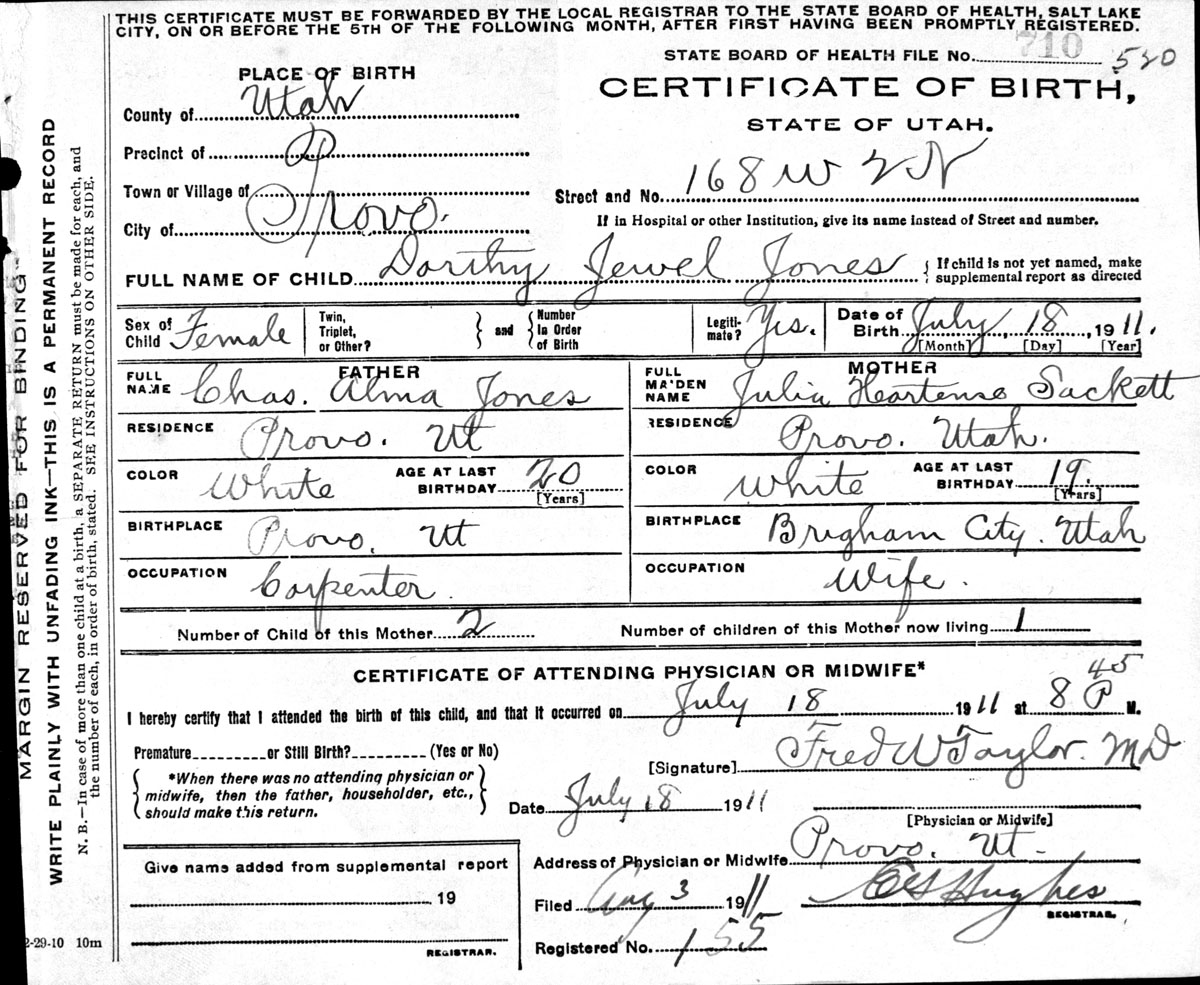 THIS CERTIFICATE MUST BE FORWARDED BY THE LOCAL REGISTRAR TO THE STATE BOARD OF HEALTH, SALT LAKE
CITY, ON OR BEFORE THE 5TH OF THE FOLLOWING MONTH, AFTER FIRST HAVING BEEN PROMPTLY REGISTERED.
STATE BOARD OF HEALTH FILE No. 710 520
PLACE OF BIRTH
CERTIFICATE OF BIRTH,
STATE OF UTAH.
County of Utah
Precinct of
Town or Village of
City of Provo.
Street and No. 168 W 2 N
If in Hospital or other Institution, give its name instead of Street and number.
FULL NAME OF CHILD Dorthy Jewel Jones { If child is not yet named, make
supplemental report as directed
Sex of Child Female
Twin, Triplet, or Other? } and { Number In Order of Birth
Legiti-mate? Yes.
Date of Birth July 18, 1911.
[Month] [Day] [Year]
FATHER
FULL NAME Chas. Alma Jones
RESIDENCE Provo. Ut
COLOR White AGE AT LAST BIRTHDAY 20 [Years]
BIRTHPLACE Provo, Ut
OCCUPATION Carpenter.
MOTHER
FULL MAIDEN NAME Julia Heartense Sackett
RESIDENCE Provo. Utah.
COLOR White AGE AT LAST BIRTHDAY 19. [Years]
BIRTHPLACE Brigham City. Utah
OCCUPATION Wife.
Number of Child of this Mother 2 Number of children of this Mother now living 1
CERTIFICATE OF ATTENDING PHYSICIAN OR MIDWIFE*
I hereby certify that I attended the birth of this child, and that it occurred on July 18 1911 at 8 45 P M.
Premature or Still Birth? (Yes or No)
[Signature] Fred W Taylor. MD
{ *When there was no attending physician or
midwife, then the father, householder, etc.,
should make this return. }
Date July 18 1911
[Physician or Midwife]
Give name added from supplemental report
19
REGISTRAR.
Address of Physician or Midwife Provo. Ut-
Filed Aug 3 1911 C S Hughes
REGISTRAR.
Registered No. 155
MARGIN RESERVED FOR BINDING
WRITE PLAINLY WITH UNFADING INK—THIS IS A PERMANENT RECORD
N. B.—In case of more than one child at a birth, a SEPARATE RETURN must be made for each, and
the number of each, in order of birth, stated. SEE INSTRUCTIONS ON OTHER SIDE.
2-29-10 10m